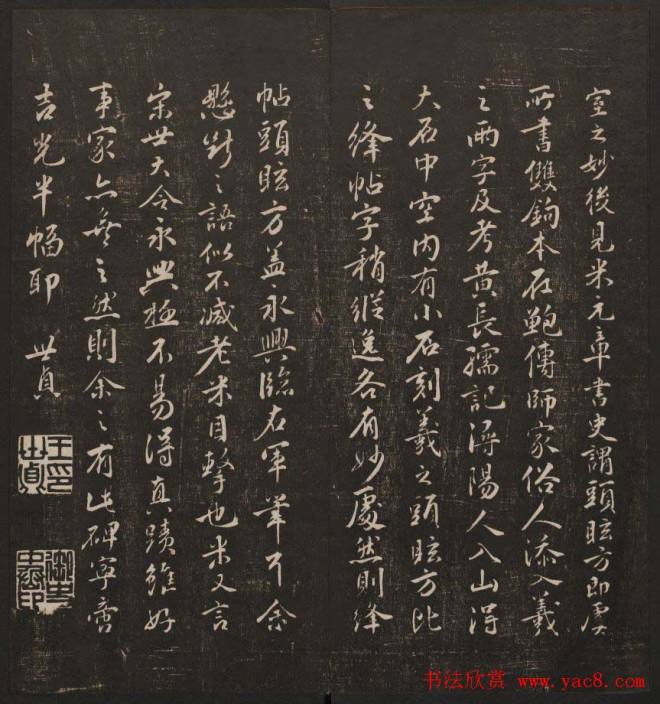 室之妙後見米元章書史謂頭眩方即虞
所書雙鉤本在鮑傳師家俗人添入羲
之兩字及考黄長孺記潯陽人入山得
大石中空内有小石刻羲之頭眩方比
之絳帖字稍縱逸各有妙處然則絳
帖頭眩方蓋永興臨右軍筆耳余
懸斷之語似不減老米目擊也米又言
宋世大令永興極不易得真蹟雖好
事家亦無之然則余之有此碑寧啻
吉光半幅耶 世貞
王印世貞
书法欣赏 www.yac8.com